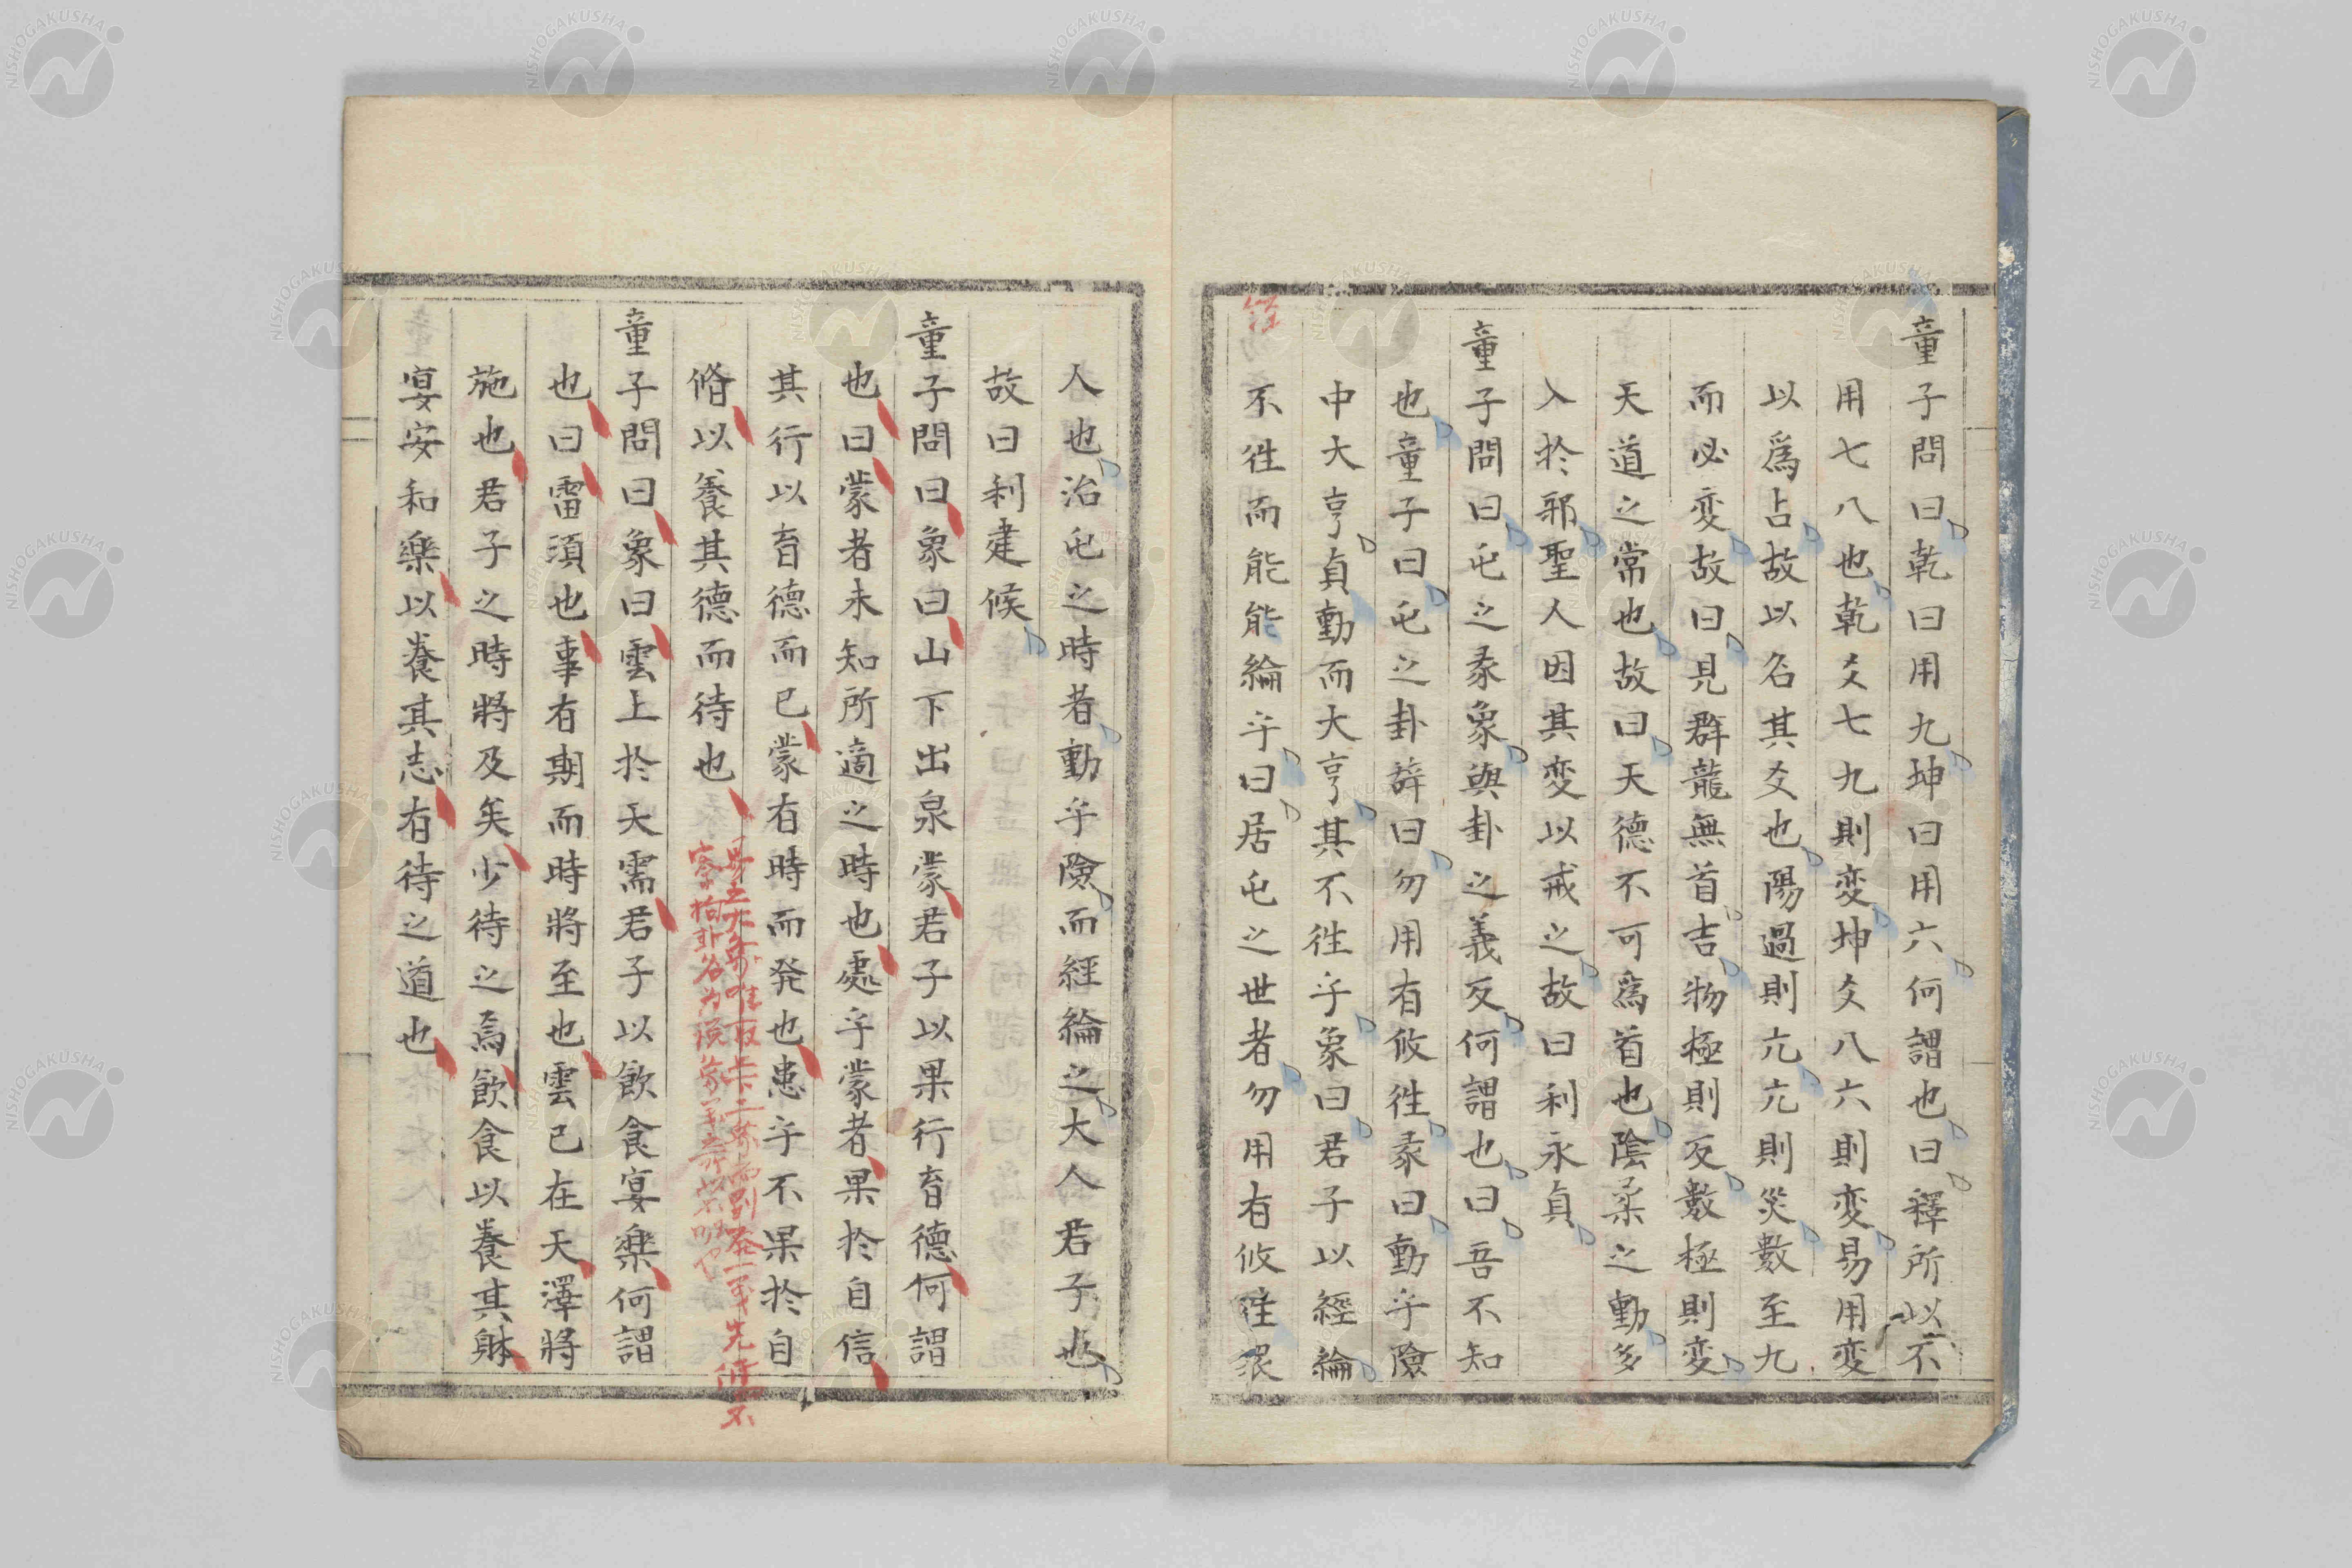 童子問曰乾曰用九坤曰用六何謂也曰釋所以不
用七八也乾爻七九則変坤爻八六則変易用変
以爲占故以名其爻也陽過則亢亢則災數至九
而必変故曰見群龍無首吉物極則反數極則変
天道之常也故曰天德不可爲首也陰柔之動多
入於邪聖人因其変以戒之故曰利永貞
童子問曰屯之彖象與卦之義反何謂也曰吾不知
也童子曰屯之卦辭曰勿用有攸徃彖曰動乎險
中大亨貞動而大亨其不徃乎象曰君子以經綸
不徃而能能綸乎曰居屯之世者勿用有攸徃衆
經
人也治屯之時者動乎險而經綸之大人君子也
故曰利建侯
童子問曰象曰山下出泉蒙君子以果行育德何謂
也曰蒙者未知所適之時也處乎蒙者果於自信
其行以育德而已蒙有時而発也患乎不果於自
脩以養其德而待也
童子問曰象曰雲上於天需君子以飲食宴樂何謂
也曰雷須也事有期而時將至也雲已在天澤將
施也君子之時將及矣少待之焉飲食以養其躰
宴安和樂以養其志有待之道也
NISHOGAKUSHA